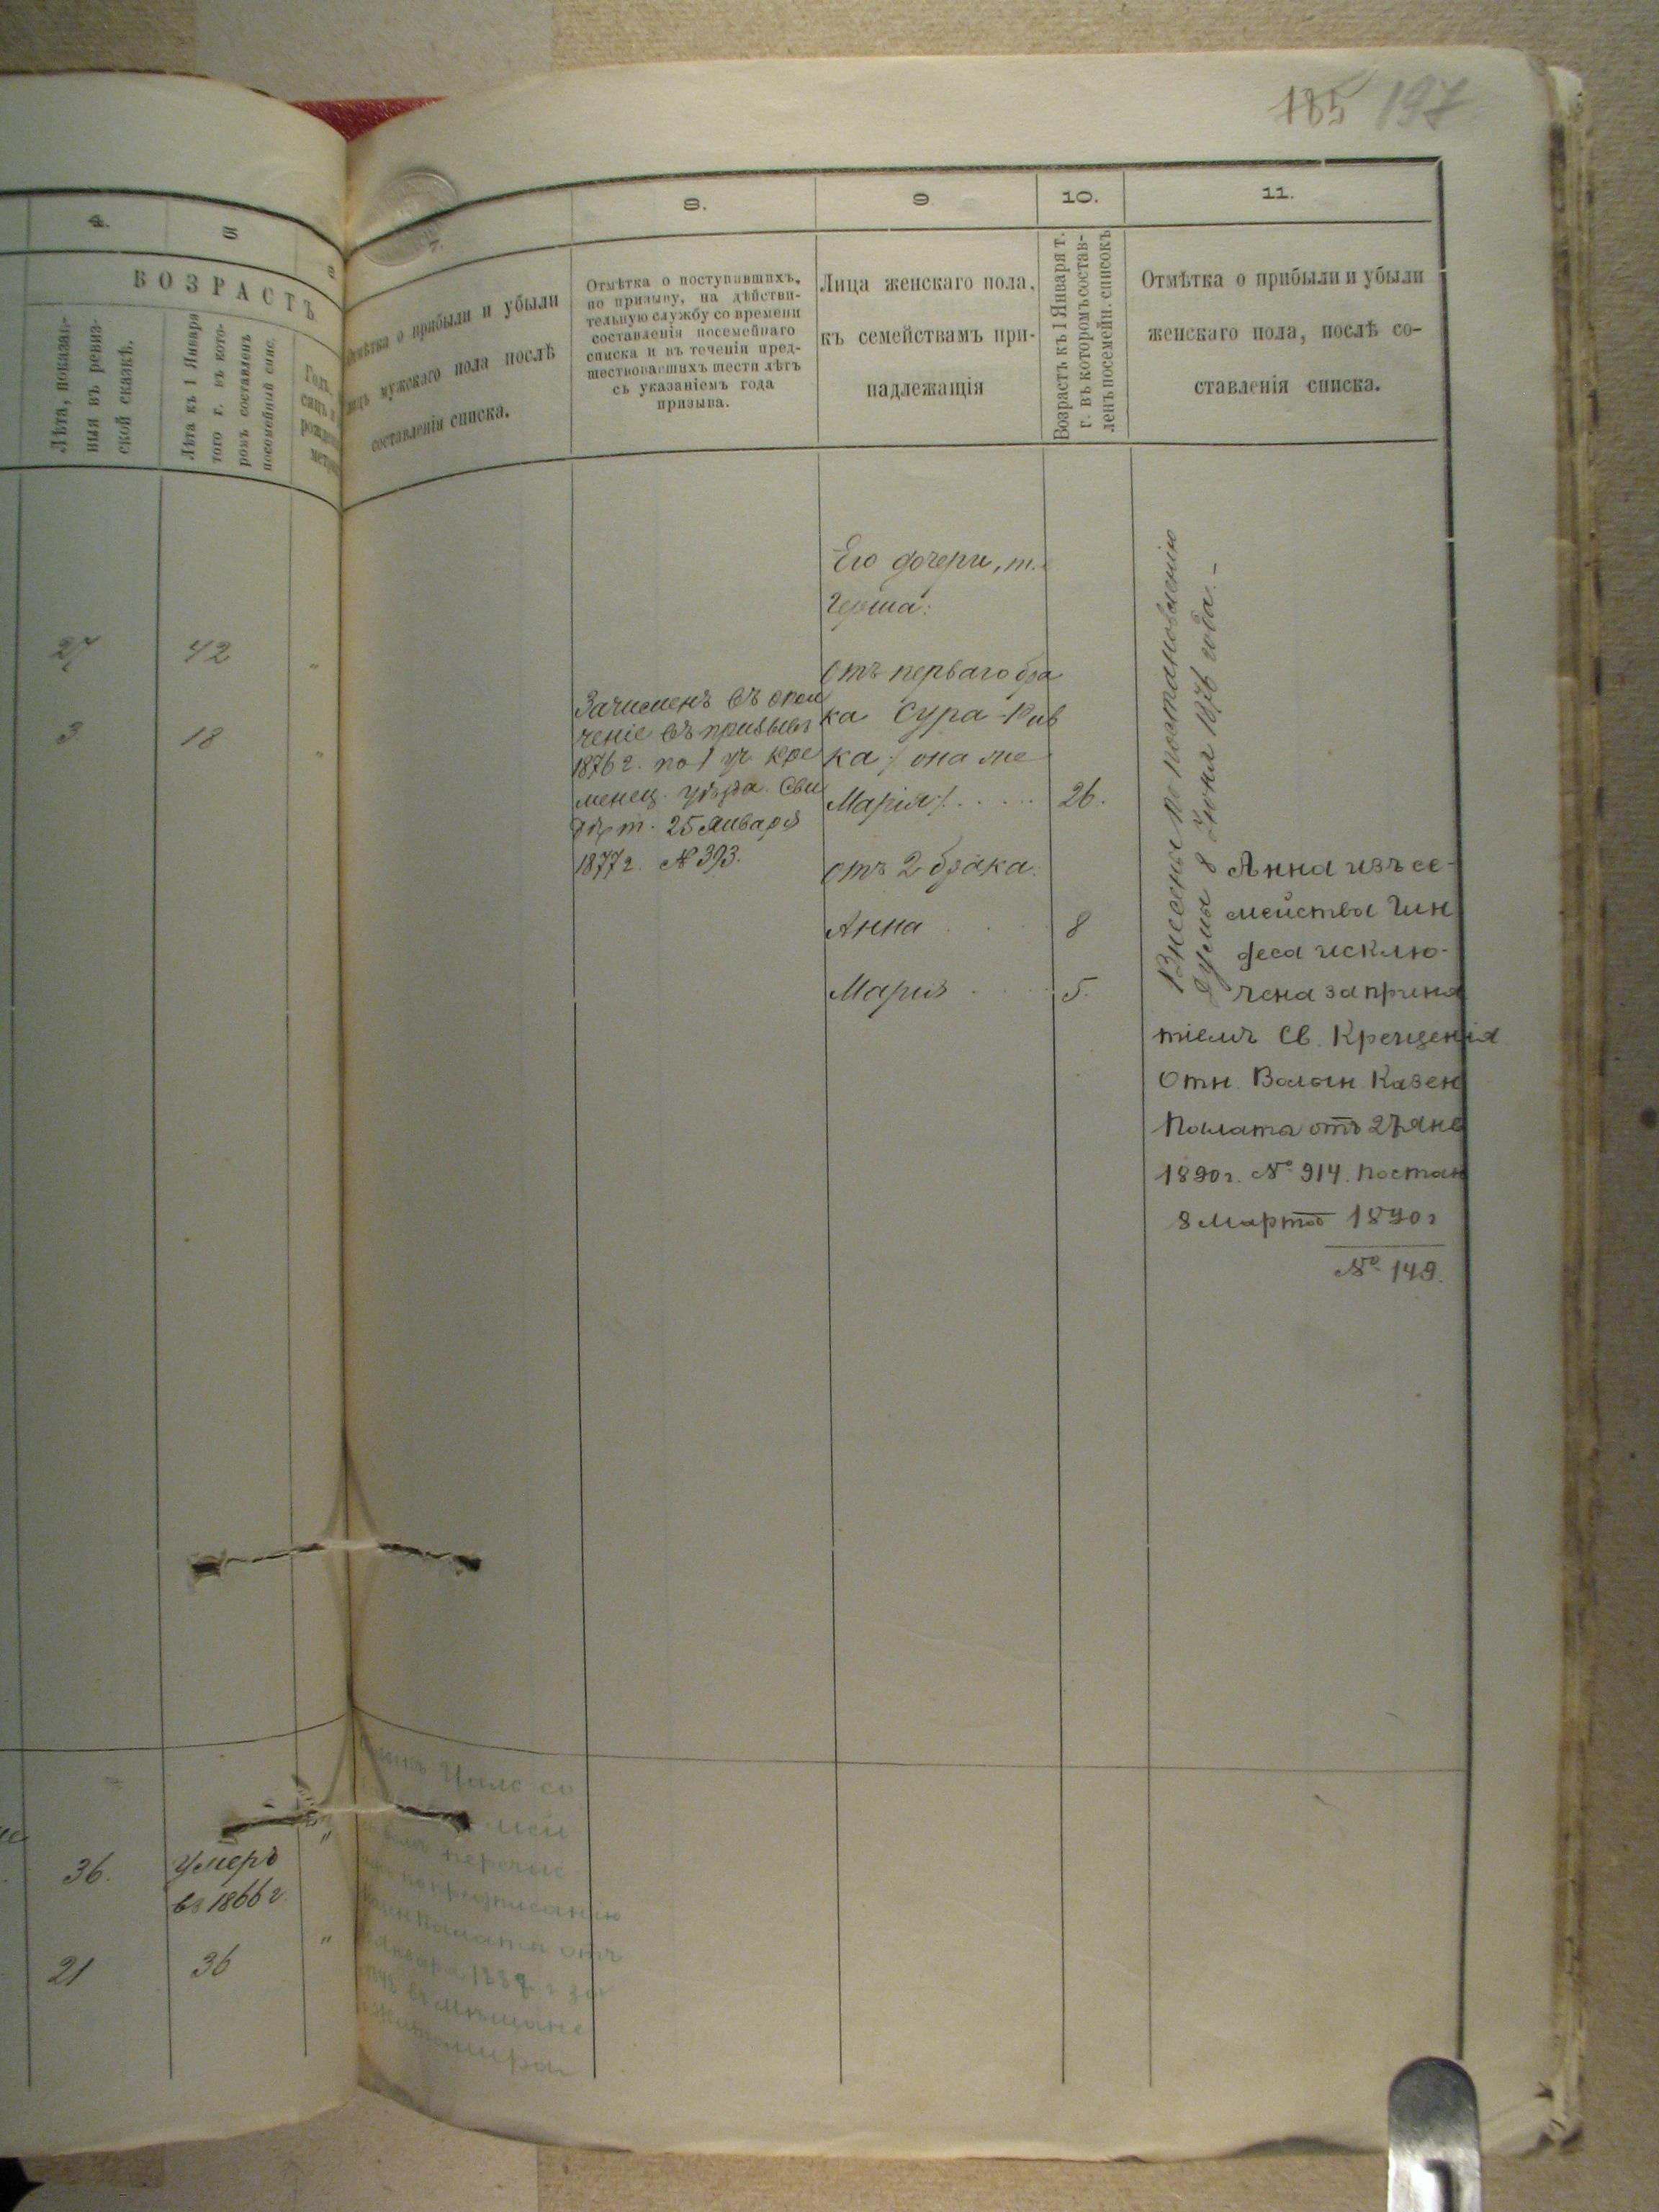 185 197
4.
5
8.
9
10.
11.
ВОЗРАСТЪ
Лѣта, показан-
ныя въ ревиз-
ской сказкѣ.
Лѣта къ 1 Января
того г. въ кото-
ромъ составленъ
посемейный спис.
Отмѣтка о прибыли и убыли
лицъ мужскаго пола послѣ
составленія списка.
Отмѣтка о поступившихъ,
по призыву, на дѣйстви-
тельную службу со времени
составленія посемейнаго
списка и въ теченіи пред-
шествовавшихъ шести лѣтъ
съ указаніемъ года
призыва.
Лица женскаго пола,
къ семействамъ при-
надлежащія
Возрастъ къ 1 Января т.
г. въ которомъ состав-
ленъ посемейн. списокъ
Отмѣтка о прибыли и убыли
женскаго пола, послѣ со-
ставленія списка.
27 42 "
3 18 "
Зачисленъ въ опол
ченіе въ призывъ
1876 г. по 1 уч. Кре
менец. уѣзда. Сви
дѣт. 25 Января
1877 г. № 393.
Его дочери, т.е
Герша:
отъ перваго бра
ка Сура-Рив
ка /: она же
Марія :/ 26.
отъ 2 брака:
Анна 8
Марія 5.
Внесены по постановленію
Думы 8 Іюня 1876 года.-
Анна изъ се-
мейства Гин
деса исклю-
чена за приня
тіемъ Св. Крещенія
Отн. Волын. Казен
Палаты отъ 27 Янв
1890 г. № 914. постан
8 Марта 1890 г
№ 149.
36. Умеръ "
въ 1866 г.
21 36 "
перечис
предписанію
Палаты отъ
Января
въ мѣщане
Житомира